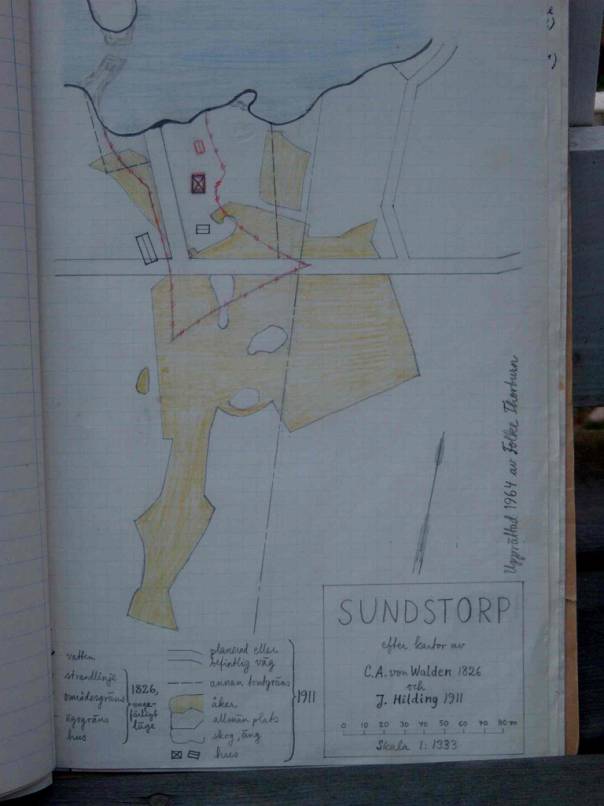 Upprättad 1964 av Folke Thorburn
SUNDSTORP
efter kartor av
C.A. von Walden 1826
och
J. Hilding 1911
0 10 20 30 40 50 60 70 80 m
Skala 1:1933
vatten
strandlinje
områdesgräns
ägogräns
hus
1826,
unge-
färligt
läge
planerad eller
befintlig väg
annan tomtgräns
åker
allmän plats
skog, äng
hus
1911